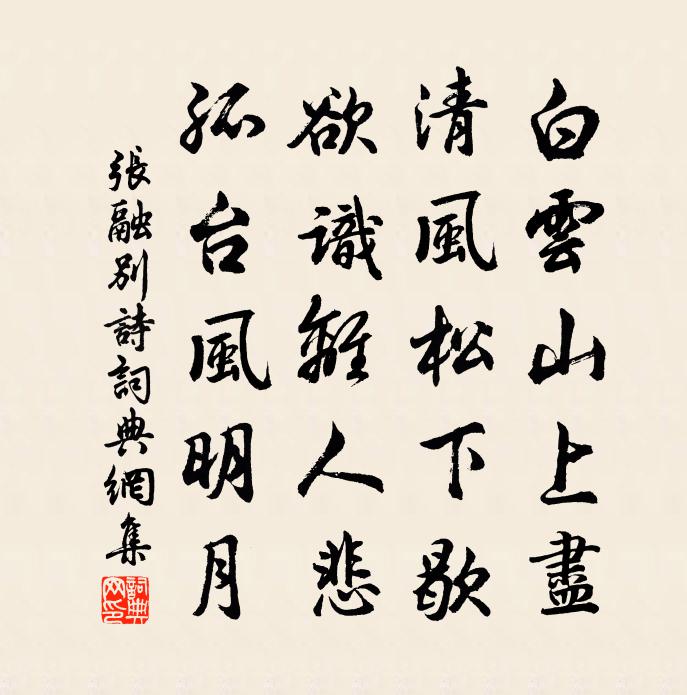 白雲山上盡
清風松下歇
欲識離人悲
孤台風明月
張融別詩詞典網集
詞典网印